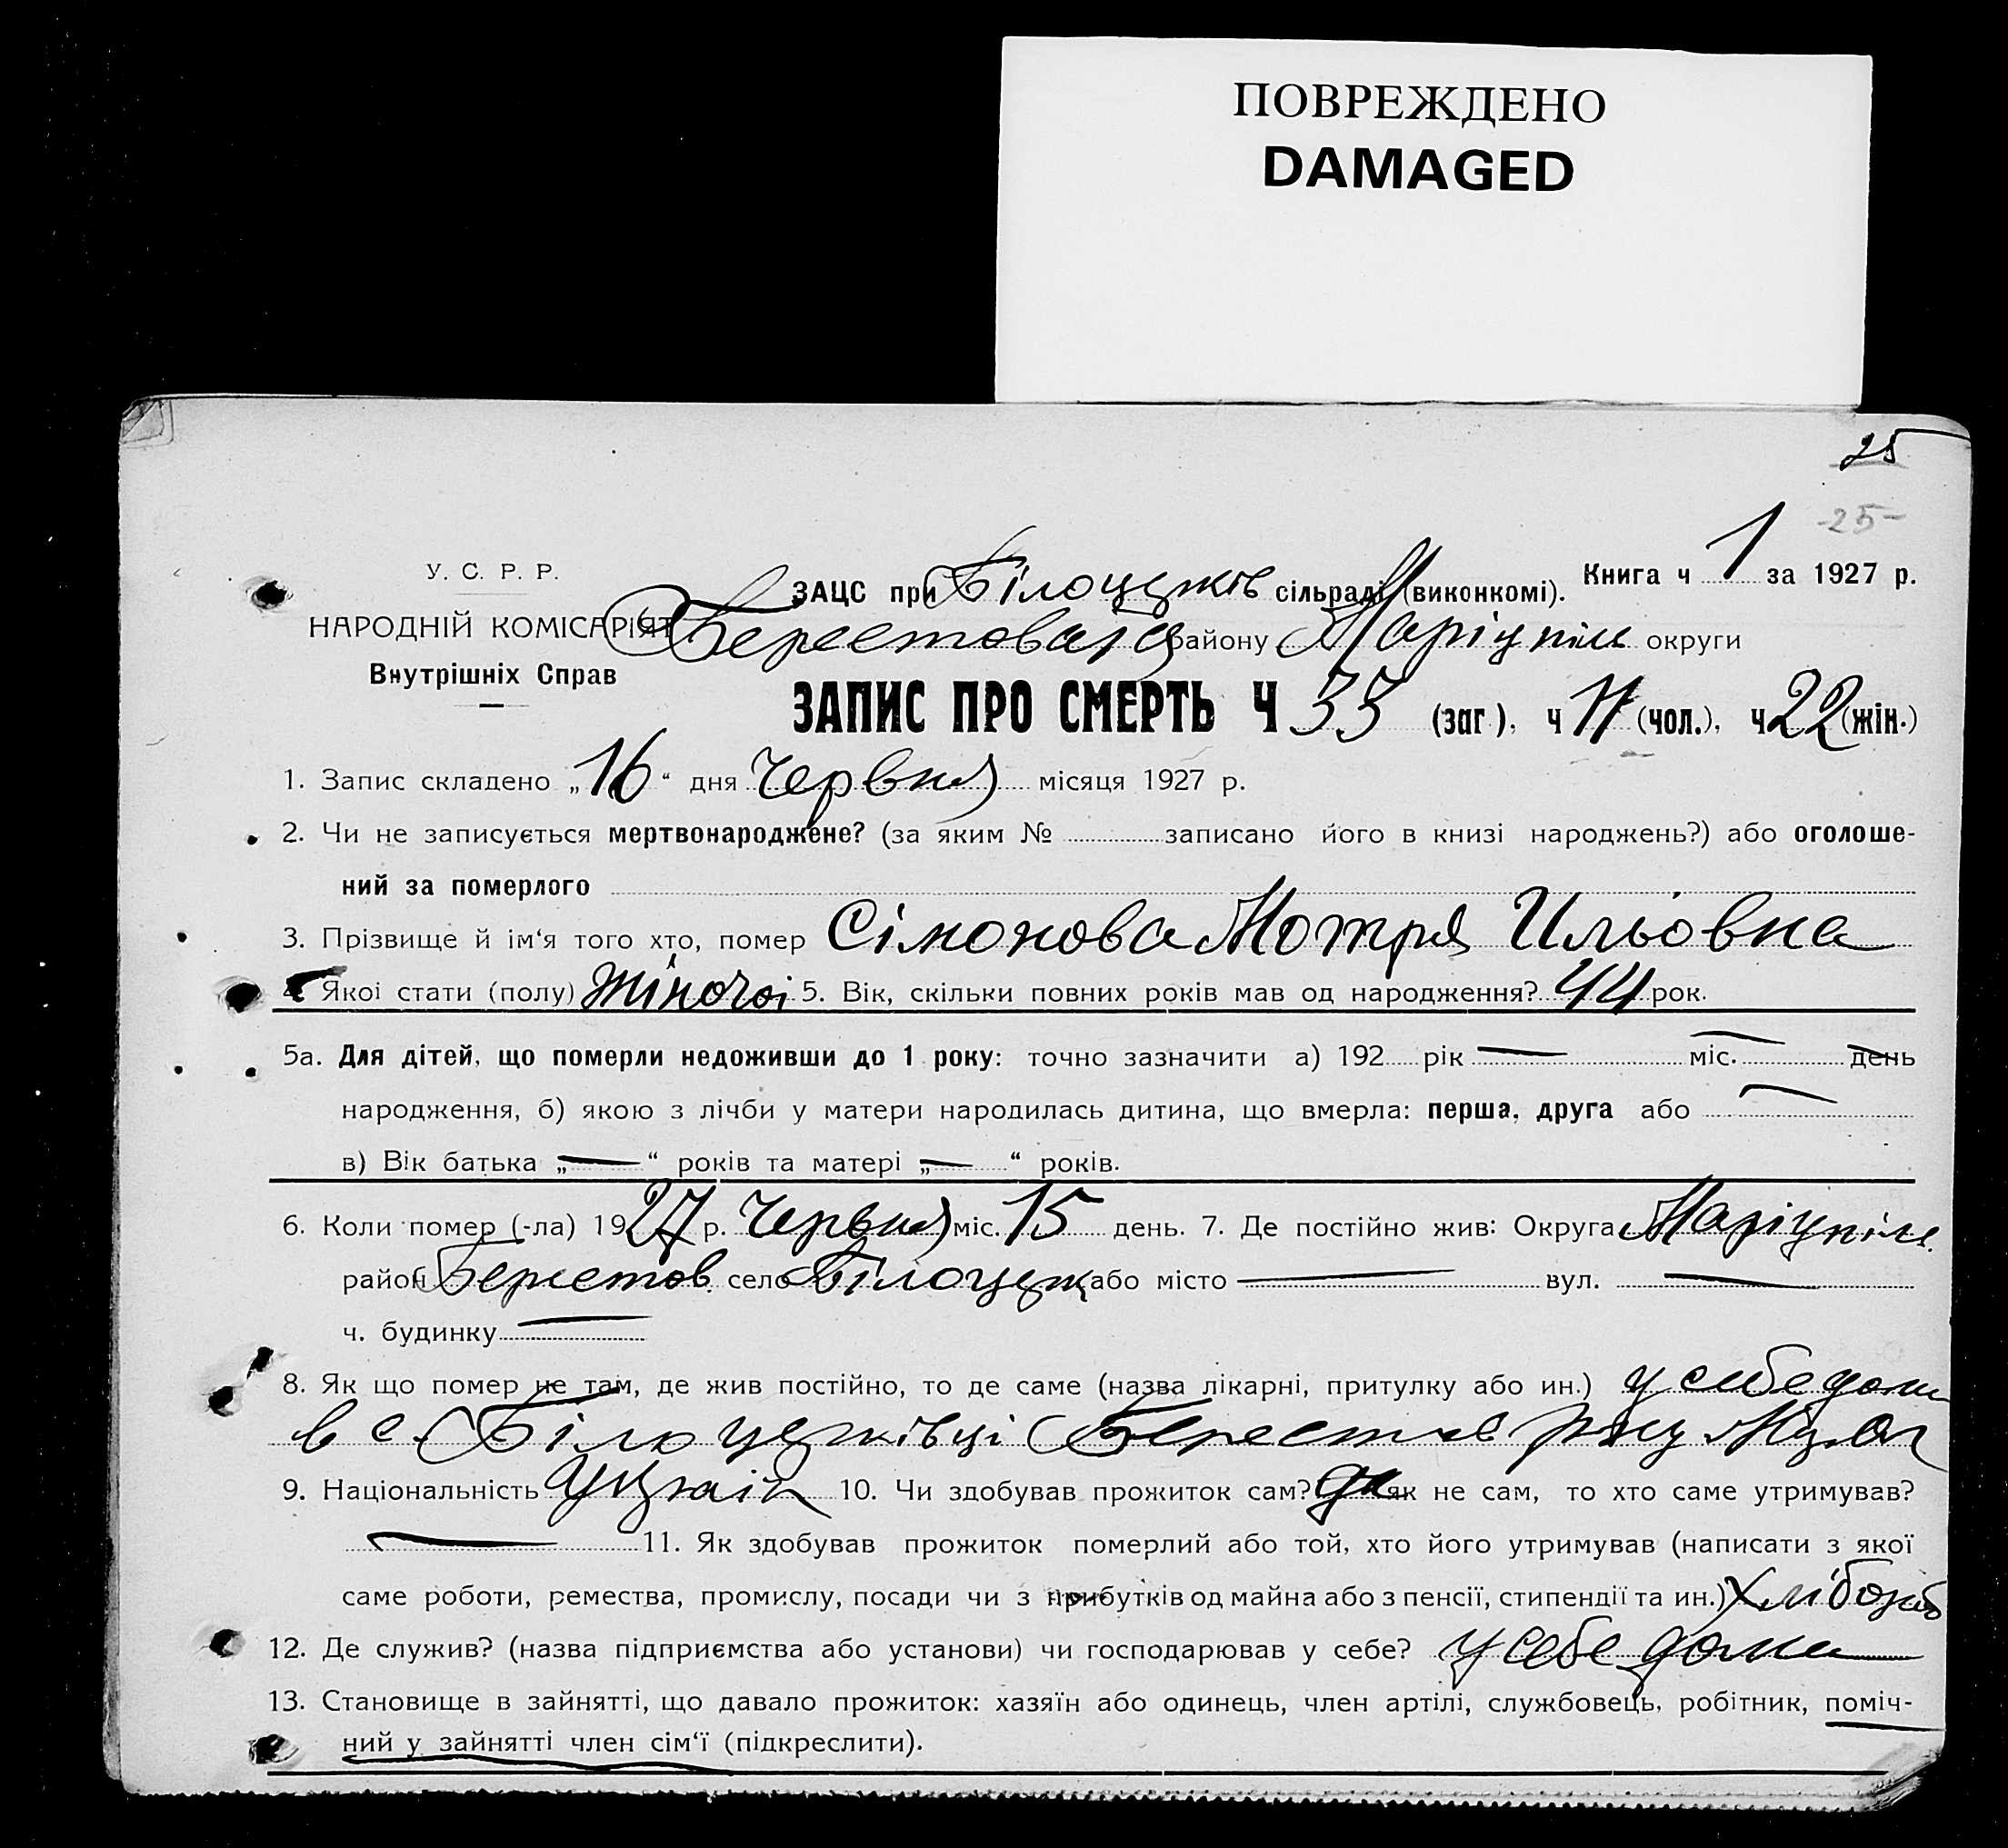 ПОВРЕЖДЕНО
DAMAGED
25
-25-
У. С. Р. Р.
НАРОДНІЙ КОМІСАРІЯТ
Внутрішніх Справ
ЗАЦС при Білоцерків сільраді (виконкомі). Книга ч 1 за 1927 р.
району Маріупіль округи
ЗАПИС ПРО СМЕРТЬ Ч 33 (заг.), ч 11 (чол.), ч 22 (жін.)
1. Запис складено „16“ дня Червня місяця 1927 р.
2. Чи не записується мертвонароджене? (за яким № записано його в книзі народжень?) або оголоше-
ний за померлого
3. Прізвище й ім‘я того хто, помер Сімонова Мотря Ильовна
4. Якоі стати (полу) жіночоі 5. Вік, скільки повних років мав од народження? 44 рок.
5а. Для дітей, що померли недоживши до 1 року: точно зазначити а) 192 рік — міс. — день
народження, б) якою з лічби у матери народилась дитина, що вмерла: перша, друга або —
в) Вік батька „—“ років та матері „—“ років.
6. Коли помер (-ла) 1927 р. Червня міс. 15 день. 7. Де постійно жив: Округа Маріупіль.
район Берестов. село Білоцерк або місто — вул. —
ч. будинку —
8. Як що помер не там, де жив постійно, то де саме (назва лікарні, притулку або ин.) у себе дома
в с. Білоцерківці Берестов р-ну
9. Національність Украін 10. Чи здобував прожиток сам? да як не сам, то хто саме утримував?
— 11. Як здобував прожиток померлий або той, хто його утримував (написати з якої
саме роботи, ремества, промислу, посади чи з прибутків од майна або з пенсії, стипендії та ин.) Хлібороб
12. Де служив? (назва підприємства або установи) чи господарював у себе? у себе дома
13. Становище в зайнятті, що давало прожиток: хазяїн або одинець, член артілі, службовець, робітник, поміч-
ний у зайнятті член сім‘ї (підкреслити).